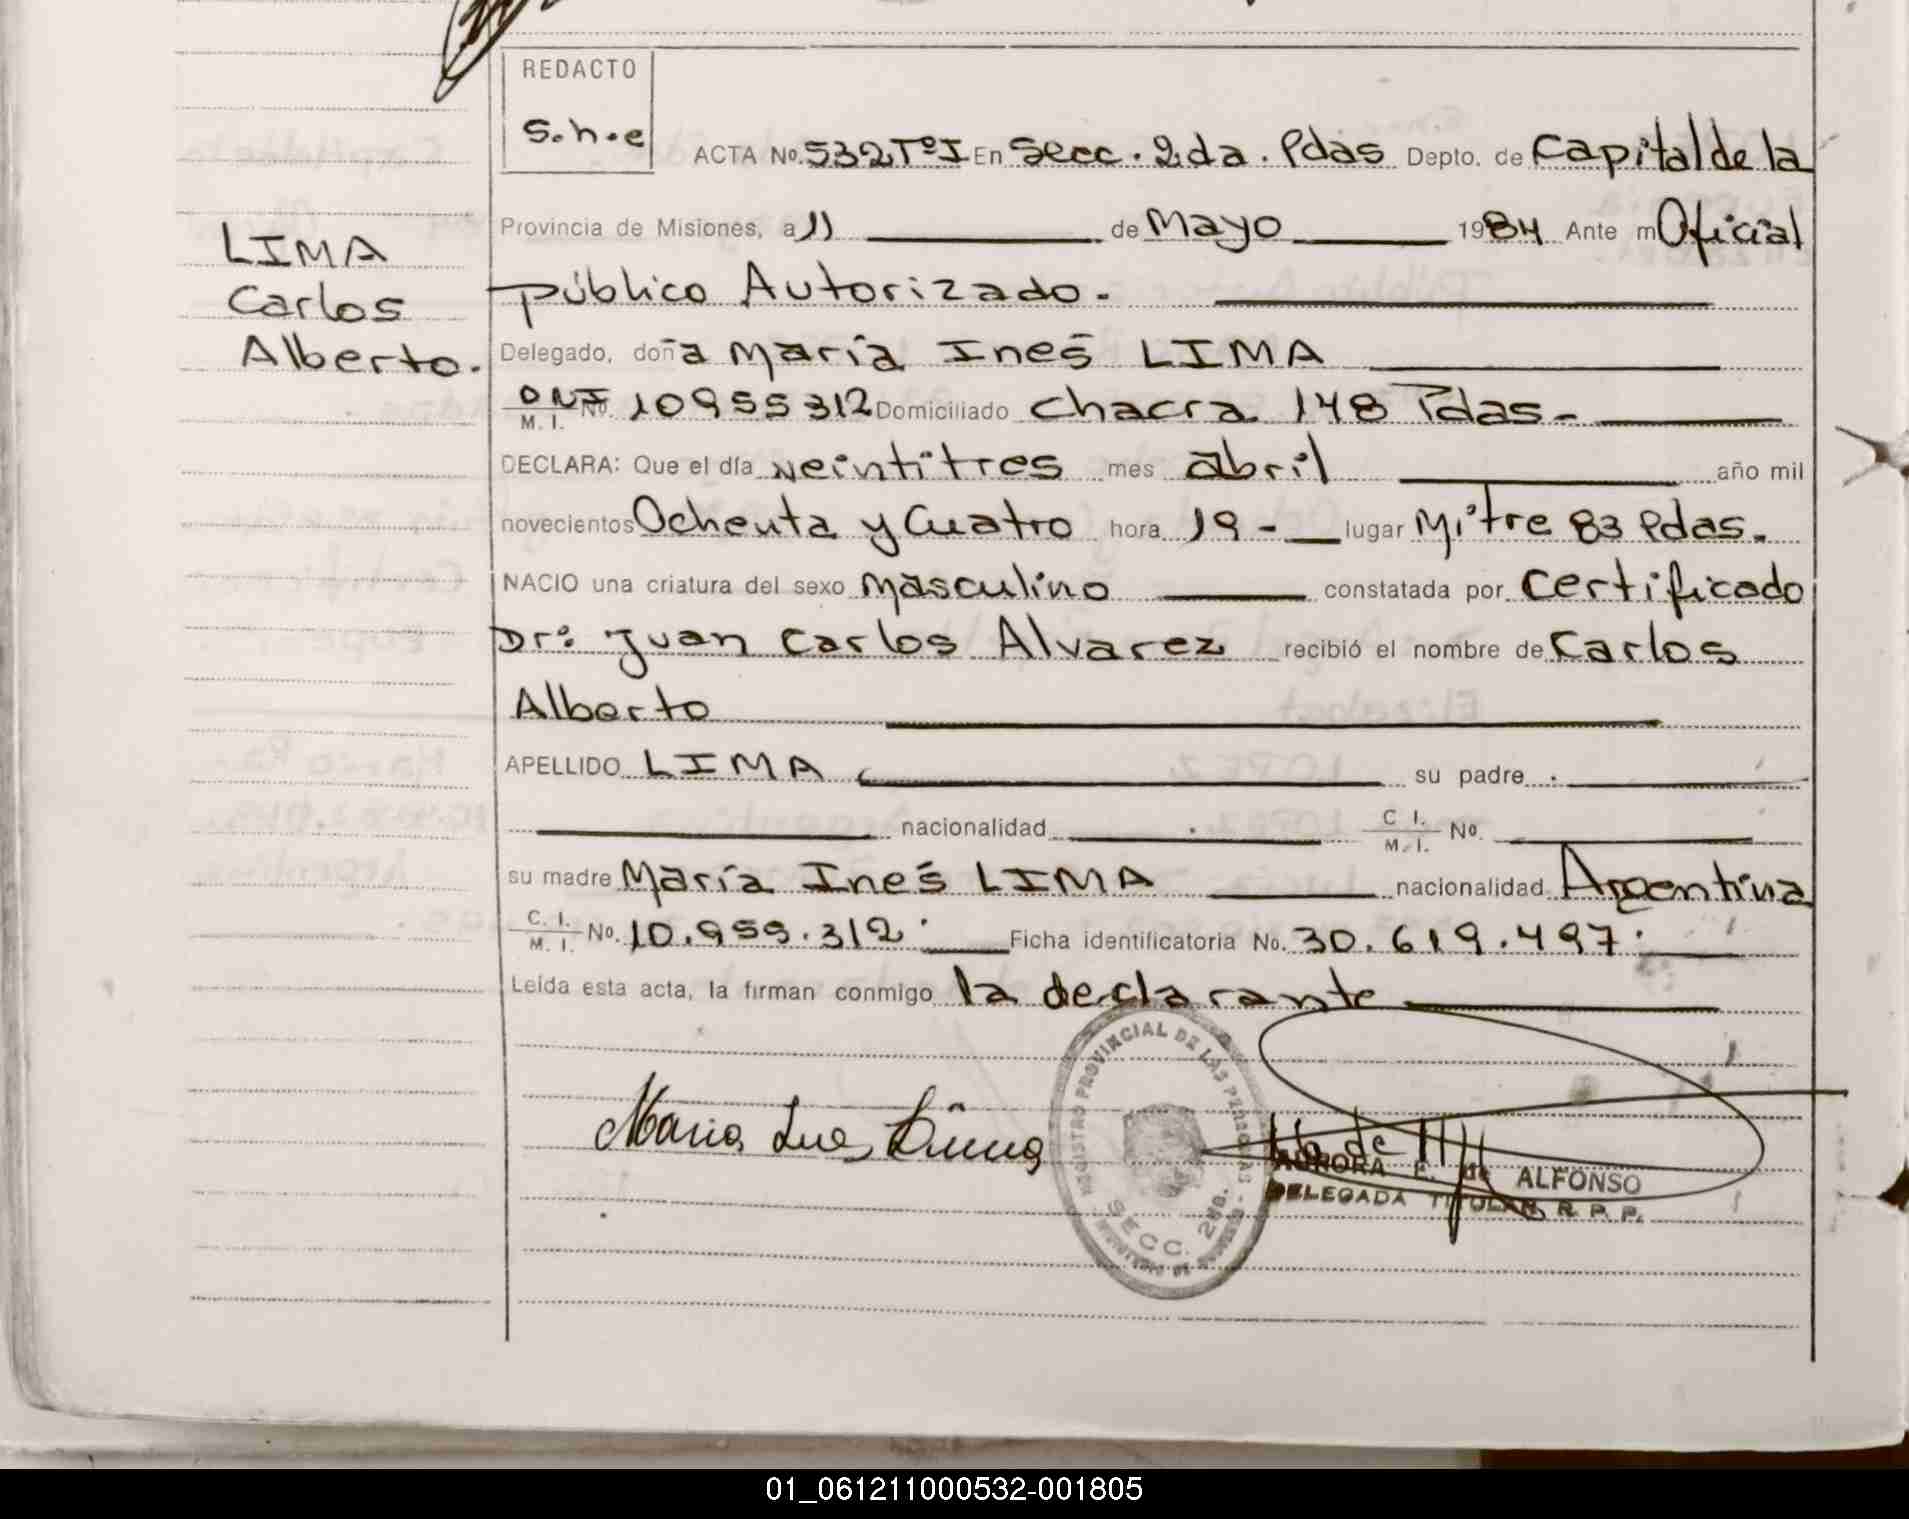 REDACTO
S.h.e
ACTA No. 532 Tº I En Secc. 2da. Pdas Depto. de Capital de la
Provincia de Misiones, a 11 de Mayo 1984 Ante mi Oficial
público Autorizado.
LIMA
Carlos
Alberto.
Delegado, doña María Inés LIMA
DNI No. 10955312 Domiciliado Chacra 148 Pdas-
M. I.
DECLARA: Que el día veintitres mes abril año mil
novecientos Ochenta y Cuatro hora 19- lugar Mitre 83 Pdas.
NACIO una criatura del sexo Masculino constatada por Certificado
Dr: Juan Carlos Alvarez recibió el nombre de Carlos
Alberto
APELLIDO LIMA su padre
nacionalidad C I. No.
M. I.
su madre María Inés LIMA nacionalidad Argentina
C. I. No. 10.955.312. Ficha identificatoria No. 30.619.497.
M. I.
Leída esta acta, la firman conmigo la declarante
REGISTRO PROVINCIAL DE LAS PERSONAS
SECC. 2da.
AURORA E. de ALFONSO
DELEGADA TITULAR R. P. P.
01_061211000532-001805